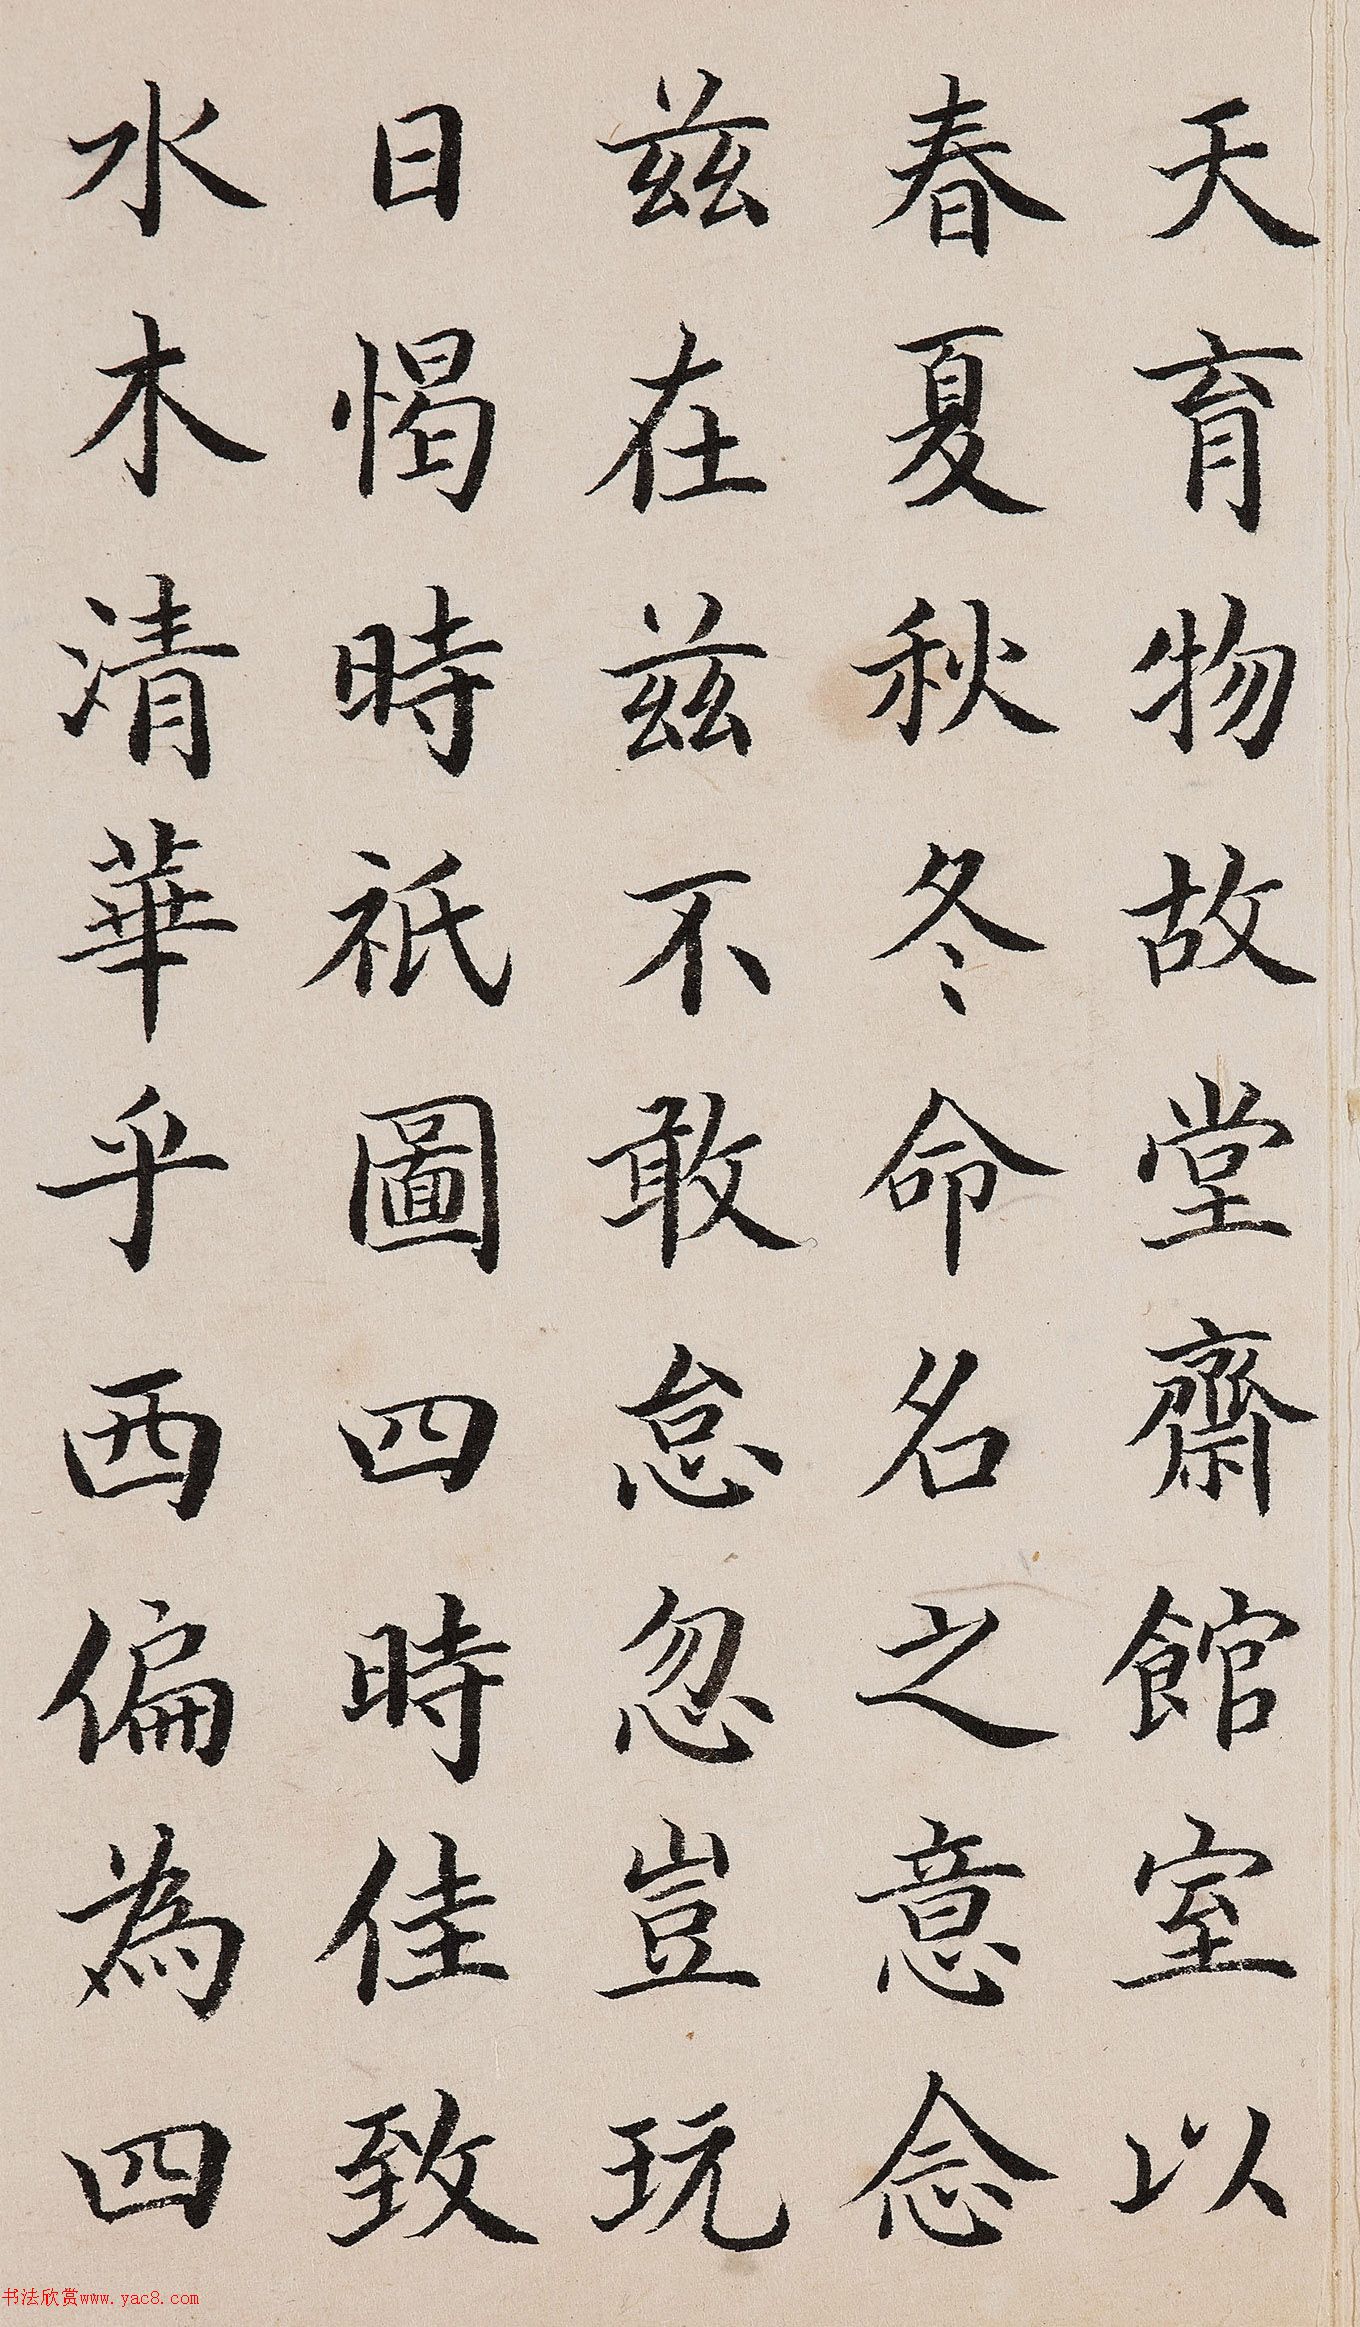 天育物故堂齋館室以
春夏秋冬命名之意念
茲在茲不敢怠忽豈玩
日愒時祇圖四時佳致
水木清華乎西偏為四
书法欣赏www.yac8.com